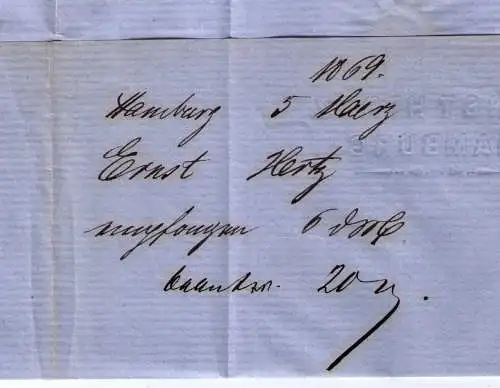 1869.
Hamburg 5 Maerz
Ernst Hertz
empfangen 6 do
beantw. 20